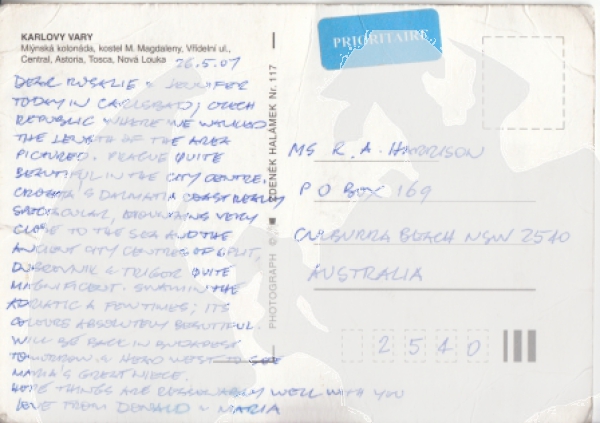 KARLOVY VARY
Mlýnská kolonáda, kostel M. Magdaleny, Vřídelní ul.,
Central, Astoria, Tosca, Nová Louka
26.5.07
PRIORITAIRE
DEAR ROSALIE & JENNIFER
TODAY IN CARLSBAD, CZECH
REPUBLIC WHERE WE WALKED
THE LENGTH OF THE AREA
PICTURED. PRAGUE QUITE
BEAUTIFUL IN THE CITY CENTRE.
CROATIA'S DALMATIA COAST REALLY
SPECTACULAR, MOUNTAINS VERY
CLOSE TO THE SEA AND THE
ANCIENT CITY CENTRES OF SPLIT,
DUBROVNIK & TROGIR QUITE
MAGNIFICENT. SWAM IN THE
ADRIATIC A FEW TIMES; ITS
COLOURS ABSOLUTELY BEAUTIFUL.
WILL BE BACK IN BUDAPEST
TOMORROW & HEAD WEST TO SEE
MARIA'S GREAT NIECE.
HOPE THINGS ARE REASONABLY WELL WITH YOU
LOVE FROM DONALD & MARIA
PHOTOGRAPH © ZDENĚK HALÁMEK Nr. 117
MS R. A. HARRISON
P O BOX 169
CULBURRA BEACH NSW 2540
AUSTRALIA
2540